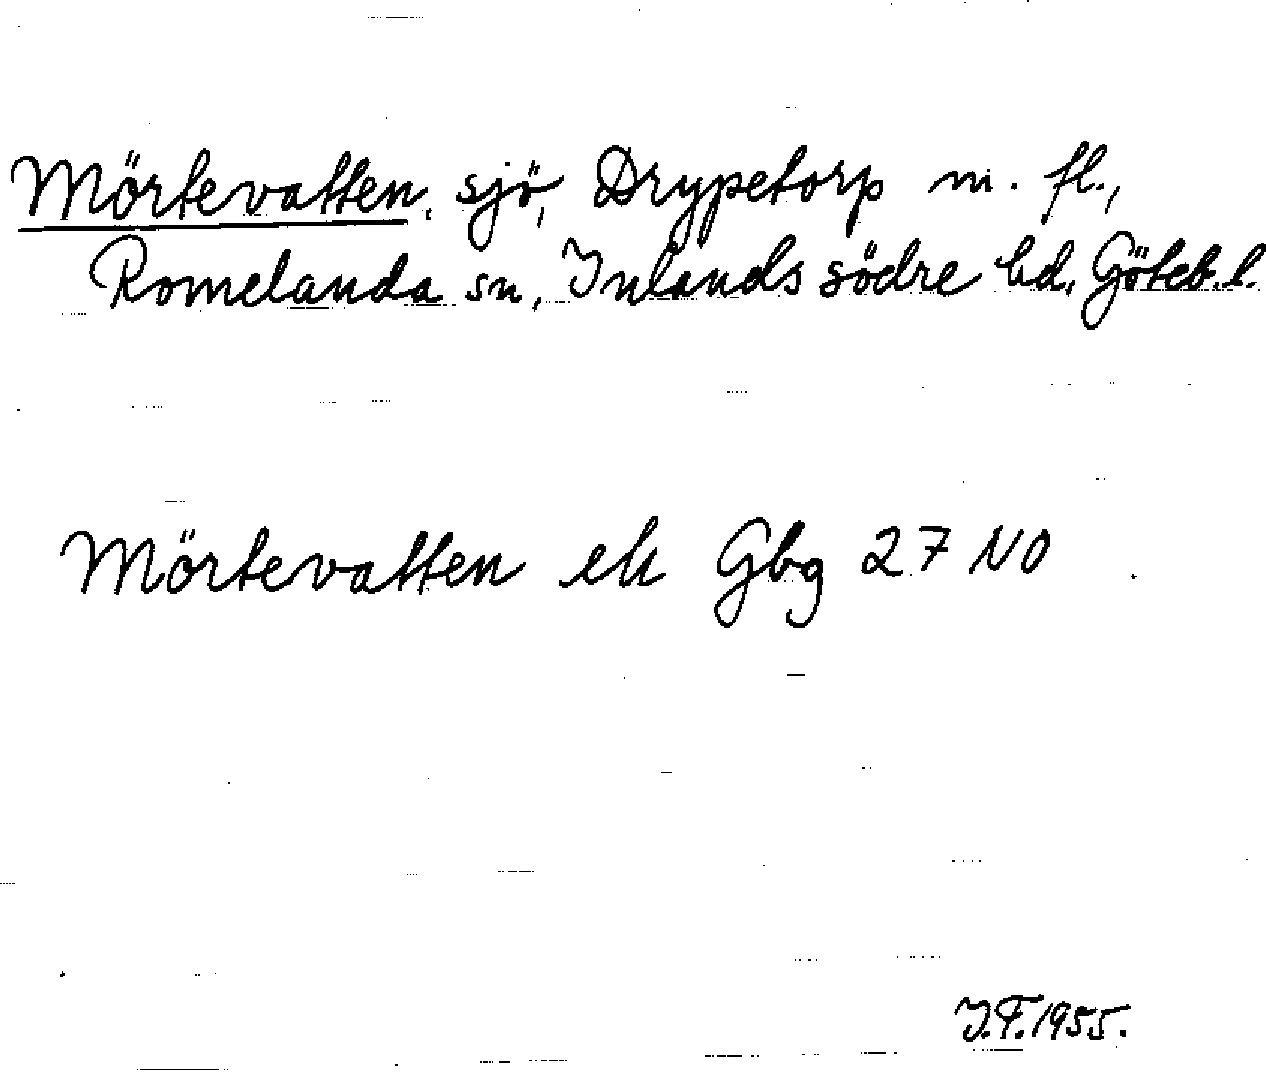 Mörtevatten, sjö, Drypetorp m. fl.,
Romelanda sn, Inlands södre hd, Göteb. l.
Mörtevatten ek Gbg 27 NO
J.F. 1955.